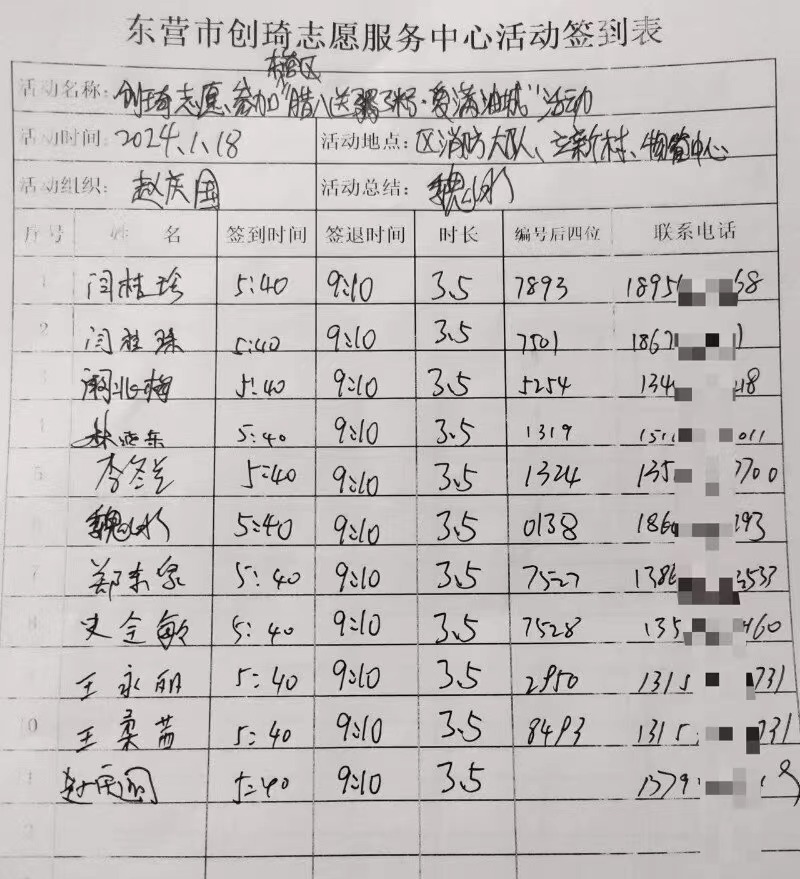 东营市创琦志愿服务中心活动签到表
活动名称: 创琦志愿、参加"腊八送粥 爱满油城"活动
活动时间: 2024.1.18 活动地点: 区消防大队、立新村、物管中心
活动组织: 赵庆国 活动总结: 魏
序号 姓 名 签到时间 签退时间 时长 编号后四位 联系电话
1 闫桂珍 5:40 9:10 3.5 7893 1895 68
2 闫桂 5:40 9:10 3.5 7501 1867
3 梅 5:40 9:10 3.5 5254 134 18
4 林 东 5:40 9:10 3.5 1319 011
5 李冬兰 5:40 9:10 3.5 1324 135 700
6 魏 5:40 9:10 3.5 0138 186 293
7 郑东泉 5:40 9:10 3.5 7527 1386 533
8 史全敏 5:40 9:10 3.5 7528 135 460
王永丽 5:40 9:10 3.5 2950 1315 731
10 王柔茜 5:40 9:10 3.5 8493 1315 731
11 赵庆国 5:40 9:10 3.5 1379